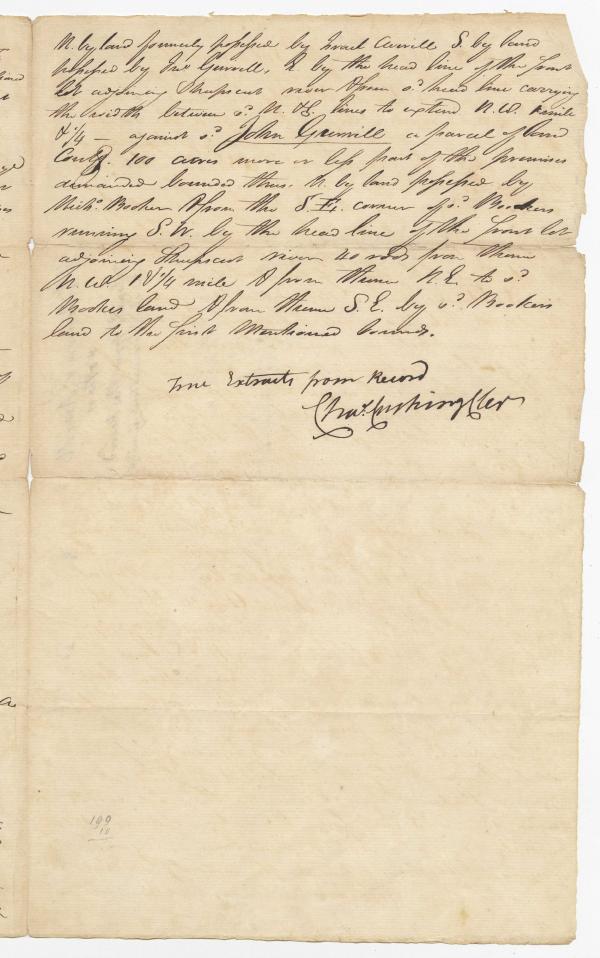 N. by land formerly possessed by Israel Averill S. by land
possessed by Jno. Greenill, E. by the head line of the front
lot adjoining Sheepscut river & from sd. head line carrying
the width between sd. N. & S. lines to extend N.W. 1 mile
& 1/4 — against sd. John Greenill a parcel of land
Contg. 100 acres more or less part of the premises
demanded bounded thus. N. by land possessed by
Michl. Booker & from the S. E. corner of sd. Bookers
running S. W. by the head line of the front lot
adjoining Sheepscut river 40 rods from thence
N. W. 1 & 1/4 mile & from thence N. E. to sd.
Bookers land & from thence S. E. by sd. Bookers
land to the first mentioned bounds.
True Extracts from Record
Chas. Cushing Cler
199
10